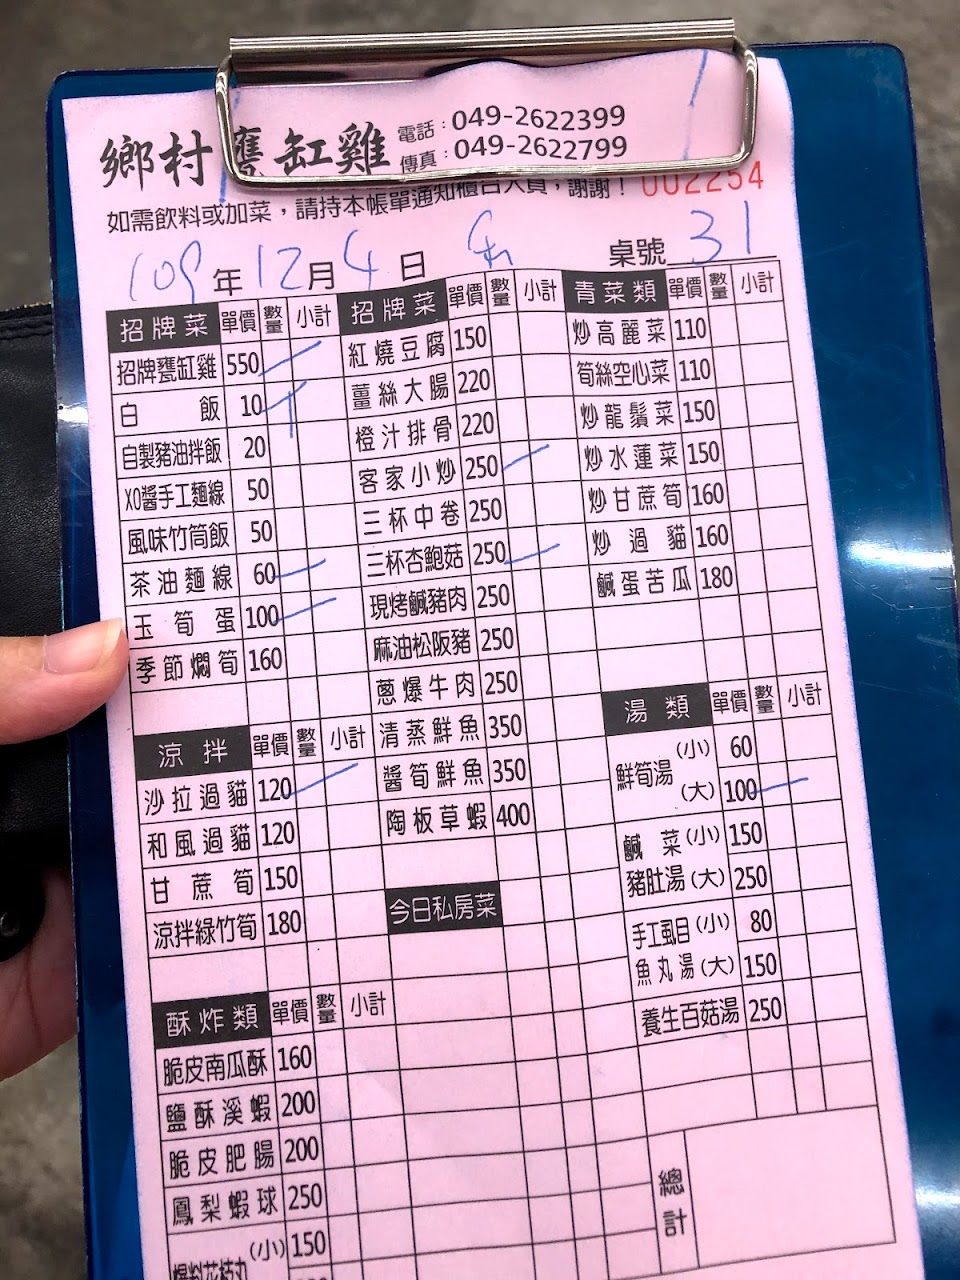 鄉村甕缸雞
電話：049-2622399
傳真：049-2622799
如需飲料或加菜，請持本帳單通知櫃台人員，謝謝！ 002254
109年12月4日 桌號 31
招牌菜 單價 數量 小計
招牌甕缸雞 550
白飯 10
自製豬油拌飯 20
XO醬手工麵線 50
風味竹筒飯 50
茶油麵線 60
玉筍蛋 100
季節燜筍 160
涼拌 單價 數量 小計
沙拉過貓 120
和風過貓 120
甘蔗筍 150
涼拌綠竹筍 180
酥炸類 單價 數量 小計
脆皮南瓜酥 160
鹽酥溪蝦 200
脆皮肥腸 200
鳳梨蝦球 250
爆料花枝丸 (小) 150
招牌菜 單價 數量 小計
紅燒豆腐 150
薑絲大腸 220
橙汁排骨 220
客家小炒 250
三杯中卷 250
三杯杏鮑菇 250
現烤鹹豬肉 250
麻油松阪豬 250
蔥爆牛肉 250
清蒸鮮魚 350
醬筍鮮魚 350
陶板草蝦 400
今日私房菜
青菜類 單價 數量 小計
炒高麗菜 110
筍絲空心菜 110
炒龍鬚菜 150
炒水蓮菜 150
炒甘蔗筍 160
炒過貓 160
鹹蛋苦瓜 180
湯類 單價 數量 小計
鮮筍湯 (小) 60
(大) 100
鹹菜 (小) 150
豬肚湯 (大) 250
手工虱目 (小) 80
魚丸湯 (大) 150
養生百菇湯 250
總計